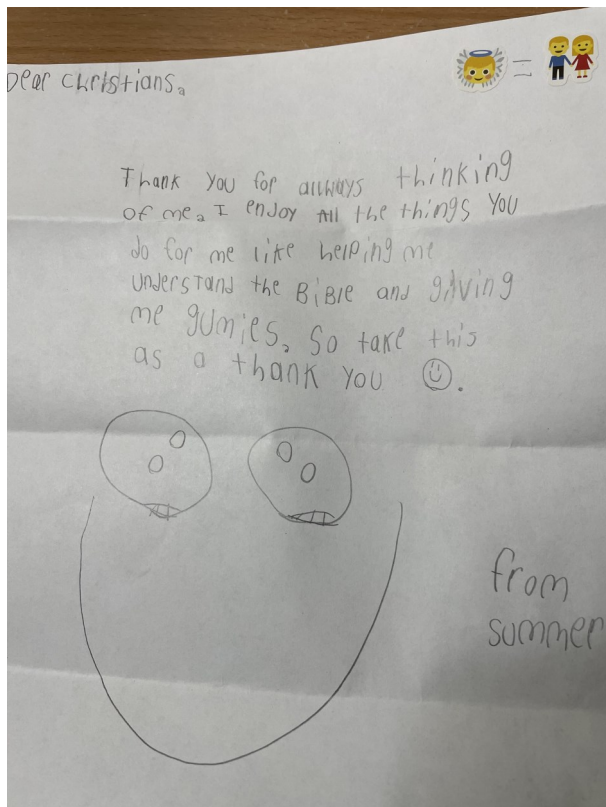 Dear Christians,
Thank you for allways thinking
of me. I enjoy All the things you
do for me like helping me
understand the BiBle and giving
me gumies. So take this
as a thank you ☺.
from
summer